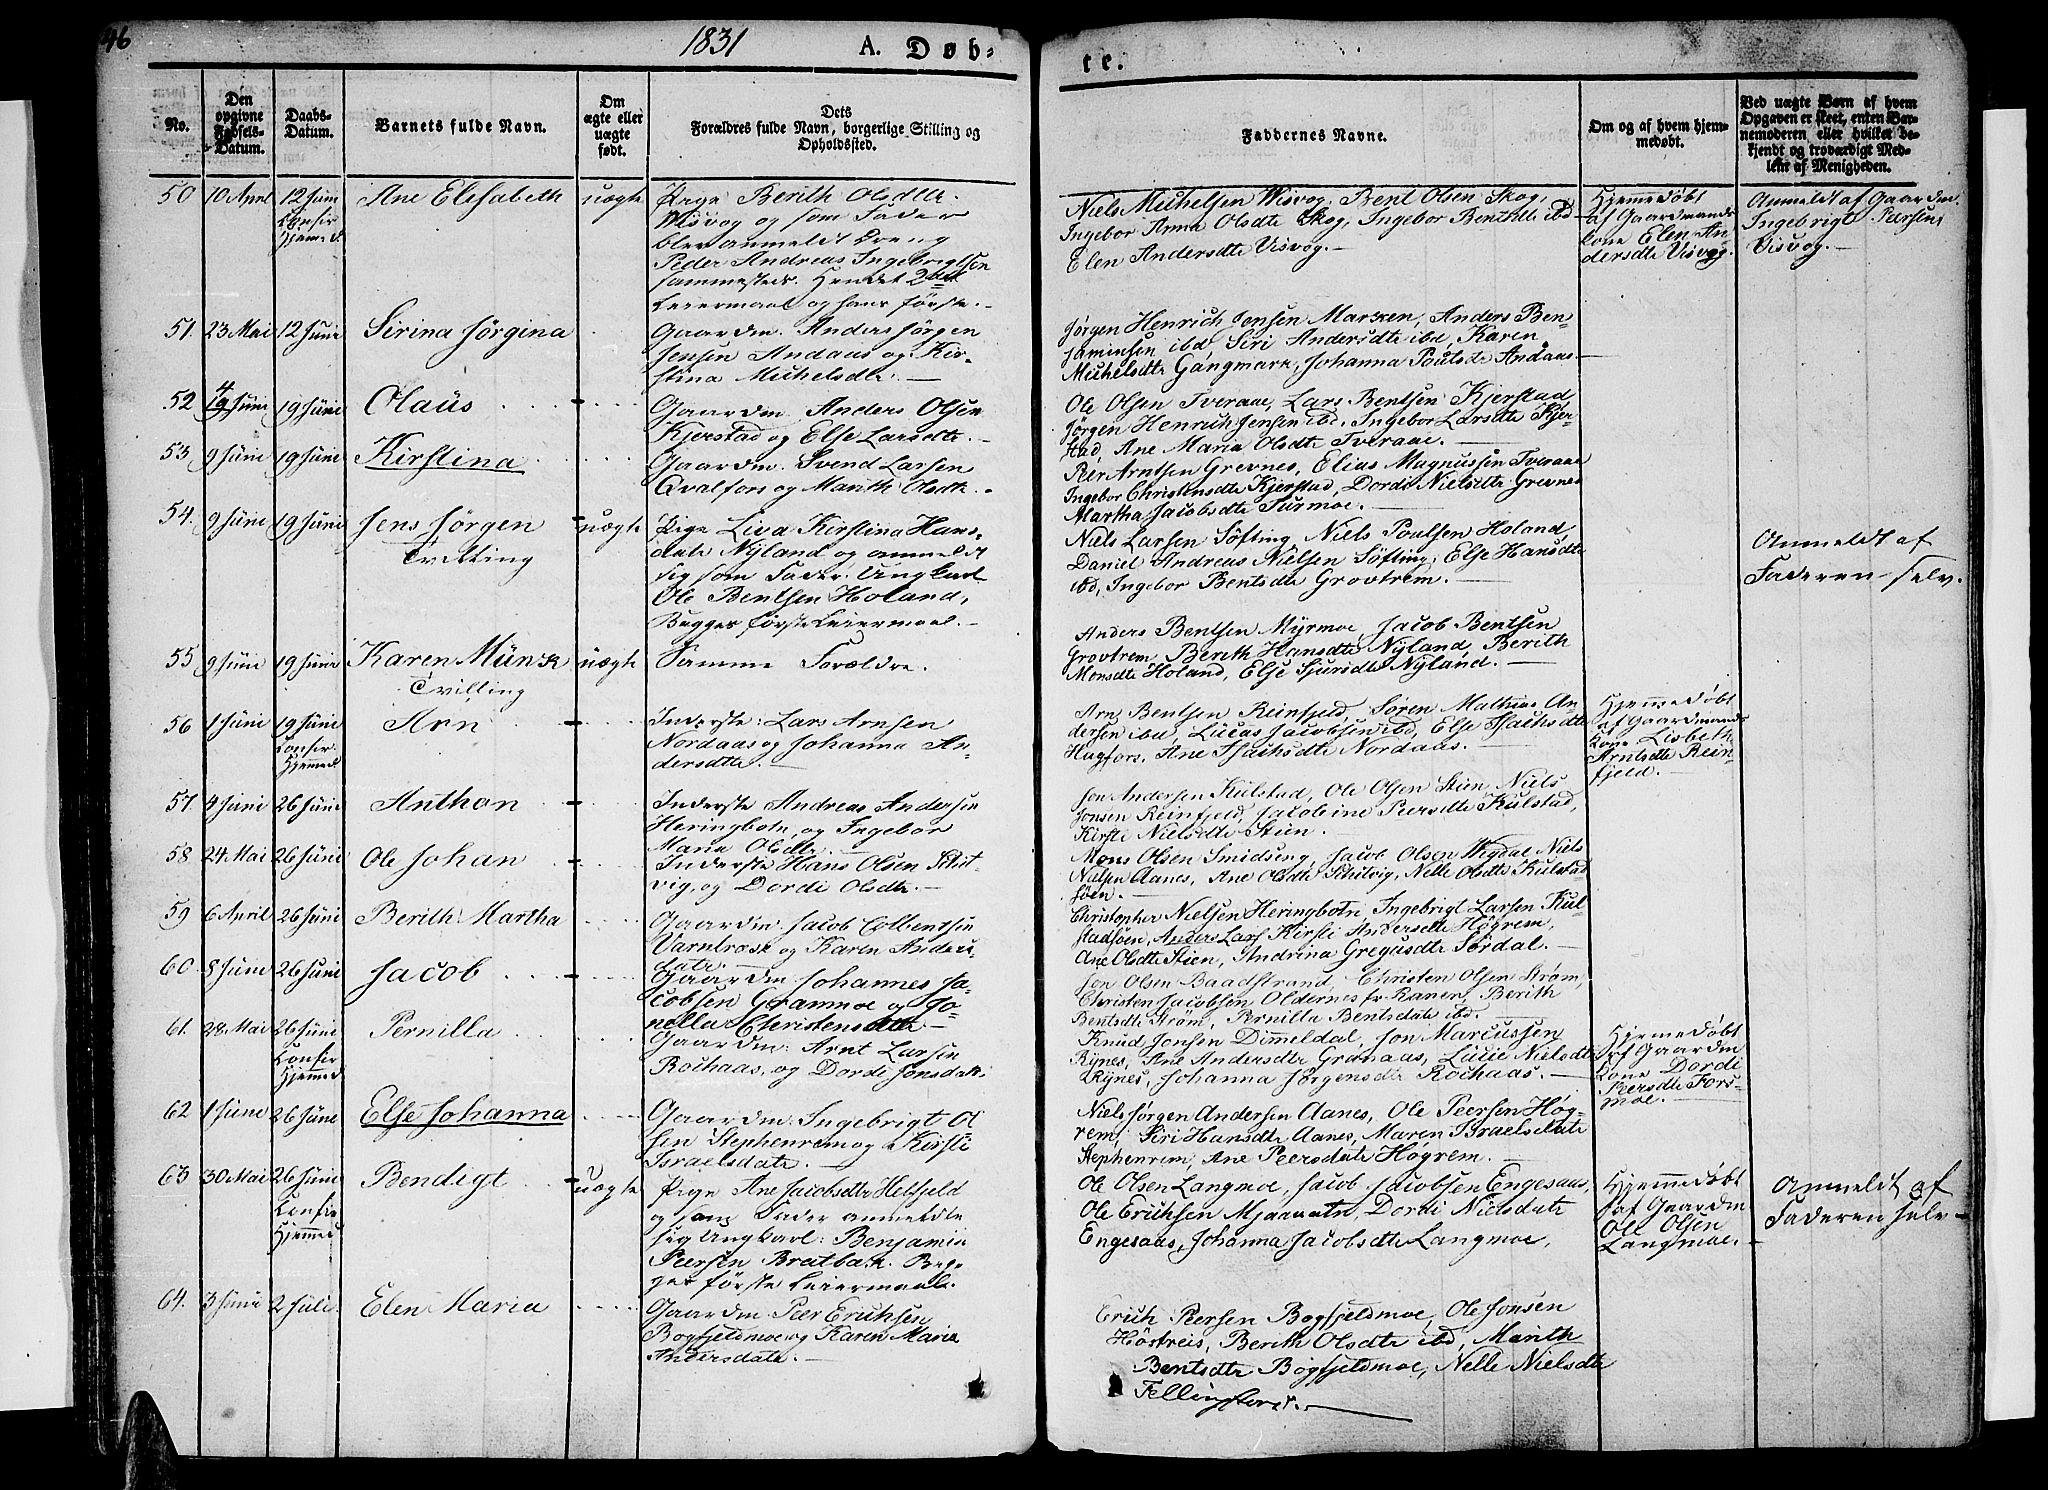 46
1831
A. Døb-
te.
No.
Den opgivne Fødsels-Datum.
Daabs-Datum.
Barnets fulde Navn.
Om ægte eller uægte født.
Dets Forældres fulde Navn, borgerlige Stilling og Opholdssted.
Faddernes Navne.
Om og af hvem hjemmedøbt.
Ved uægte Børn af hvem Opgaven er skeet, enten Barnemoderen eller hvilket bekjendt og troværdigt Medlem af Menigheden.
50 10 April 12 Juni Ane Elisabeth uægte Pige Berith Olsdtr
Confir Hjemmed
Wisvog og som Fader
blev anmeldt Dreng
Peder Andreas Ingebrigtsen
sammesteds. Hendes 2det
Leiermaal og hans første.
Niels Michelsen Wisvog, Bent Olsen Skog,
Ingebor Anna Olsdtr Skog, Ingebor Bentsdtr ibd
Elen Andersdtr Visvog.
Hjemmedøbt
af Gaardmands
kone Elen An
dersdtr Visvog.
Anmeldt af Gaardm.
Ingebrigt Peersen,
Visvog.
51. 23 Mai 12 Juni Sirina Jørgina
Gaardm. Anders Jørgen
Jensen Andaas og Kir-
stina Michelsdtr.
Jørgen Henrich Jensen Marken, Anders Ben-
jaminsen ibd, Siri Andersdtr ibd, Karen
Michelsdtr Gangmark, Johanna Poulsdtr Andaas
52 4 Juni 19 Juni Olaüs
Gaardm Anders Olsen
Kjerstad og Else Larsdtr.
Ole Olsen Tveraae, Lars Bentsen Kjerstad,
Jørgen Henrich Jensen ibd. Ingebor Larsdtr Kjer-
stad, Ane Maria Olsdtr Tveraae.
53. 9 Juni 19 Juni Kirstina
Gaardm. Svend Larsen
Qvalfors og Marith Olsdtr.
Peer Arntsen Grevnes, Elias Magnussen Tveraae
Ingebor Christensdtr Kjerstad, Dordi Nielsdtr Grevnes
Martha Jacobsdtr Turmoe.
54. 9 Juni 19 Juni Jens Jørgen uægte
Tvilling
Pige Liva Kirstina Hans-
datr Nyland og anmeldt
sig som Fader: Ungkarl
Ole Bentsen Holand,
Begges første Leiermaal.
Niels Larsen Søfting, Niels Poulsen Holand,
Daniel Andreas Nielsen Søfting, Else Hansdtr
ibd, Ingebor Bentsdtr Grovtrem.
Anmeldt af
Faderen selv.
55 9 Juni 19 Juni Karen Münck uægte Samme Forældre.
Tvilling
Anders Bentsen Myrmoe, Jacob Bentsen
Grovtrem, Berith Hansdtr Nyland, Berith
Monsdtr Holand, Else Sjursdtr Nyland.
56 1 Juni 19 Juni Arn
Confir. Hjemmed
Inderste: Lars Arnsen
Nordaas og Johanna An-
dersdtr.
Arn Bentsen Reinfjeld, Søren Mathias An-
dersen ibd, Lucas Jacobsen ibd, Else Isachsdtr
Hagfors, Ane Isachsdtr Nordaas.
Hjemmedøbt
af Gaardmands
Kone Lisbeth
Arntsdtr Rein
fjeld.
57 4 Juni 26 Juni Anthon
Inderste Andreas Andersen
Heringbotn, og Ingebor
Maria Olsdtr.
Jon Andersen Kulstad, Ole Olsen Stien, Niels
Jonsen Reinfjeld, Jacobine Peersdtr Kulstad,
Kirsti Nielsdtr Stien.
58 24 Mai 26 Juni Ole Johan
Inderste Hans Olsen Schit-
vig, og Dordi Olsdtr.
Mons Olsen Smidseng, Jacob Olsen Wegdal, Niels
Nielsen Aanes, Ane Olsdtr Schitvig, Nelle Olsdtr Kulstad
søen.
59 6 April 26 Juni Berith Martha
Gaardm: Jacob Colbentsen
Varntresk og Karen Anders
datr.
Christopher Nielsen Heringbotn, Ingebrigt Larsen Kul-
stadsøen, Anders Lars Kirsti Andersdtr Høgrem,
Ane Olsdtr Stien, Andrina Gregusdtr Sørdal.
60 8 Juni 26 Juni Jacob
Gaardm Johannes Ja-
cobsen Granmoe og Jo-
nella Christensdtr
Jon Olsen Baadstrand, Christen Olsen Strøm,
Christen Jacobsen Oldernes fr Ranen, Berith
Bentsdtr Strøm, Pernilla Bentsdatr ibd.
61. 28. Mai 26 Juni Pernilla
Confir Hjemmed
Gaardm: Arnt Larsen
Rochaas, og Dordi Jonsdatr
Knud Jonsen Dimeldal, Jon Marcussen
Rynes, Ane Andersdtr Granaas, Lucie Nielsdtr
Rynes, Johanna Jørgensdtr Rochaas.
Hjemmedøbt
af Gaardm
kone Dordi
Peersdtr Fors-
moe.
62 1 Juni 26 Juni Else Johanna
Gaardm: Ingebrigt Ol
sen Stephenrem og Kirsti
Israelsdatr.
Niels Jørgen Andersen Aanes, Ole Peersen Høg-
rem, Siri Hansdtr Aanes, Maren Israelsdatr
Stephenrem, Ane Peersdatr Høgrem.
63 30 Mai 26 Juni Bendigt uægte
Confir Hjemmed
Pige Ane Jacobsdtr Helfjeld
og som Fader anmeldte
sig Ungkarl: Benjamin
Peersen Bratbak. Beg-
ges første Leiermaal.
Ole Olsen Langmoe, Jacob Jacobsen Engesaas,
Ole Erichsen Mjaavatn, Dordi Nielsdatr
Engesaas, Johanna Jacobsdtr Langmoe,
Hjemmedøbt
af Gaardm
Ole Olsen
Langmoe.
Anmeldt af
Faderen selv
64. 3 Juni 2 Juli. Elen Maria
Gaardm: Peer Erichsen
Bogfjeldmoe og Karen Maria
Andersdatr.
Erich Peersen Bogfjeldmoe, Ole Jonsen
Høstreis, Berith Olsdtr ibd, Marith
Bentsdtr Bogfjeldmoe, Nelle Nielsdtr